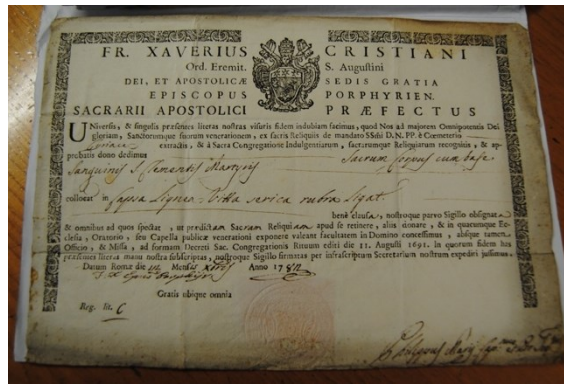 FR. XAVERIUS CRISTIANI
Ord. Eremit. S. Augustini
DEI, ET APOSTOLICÆ SEDIS GRATIA
EPISCOPUS PORPHYRIEN.
SACRARII APOSTOLICI PRÆFECTUS
UNiversis, & singulis præsentes literas nostras visuris fidem indubiam facimus, quod Nos ad majorem Omnipotentis Dei
gloriam, Sanctorumque suorum venerationem, ex sacris Reliquiis de mandato SSmi D. N. PP. è Cœmeterio
extractis, & à Sacra Congregatione Indulgentiarum, sacrarumque Reliquiarum recognitis, & ap-
probatis dono dedimus Sacrum Corpus cum Vase
Sanguinis S. Clementis Martyris
collocat in Capsa Lignea Vitta serica rubra Ligat.
benè clausa, nostroque parvo Sigillo obsignat
& omnibus ad quos spectat, ut prædictam Sacram Reliquiam apud se retinere, aliis donare, & in quacumque Ec-
clesia, Oratorio, seu Capella publicæ venerationi exponere valeant facultatem in Domino concessimus, absque tamen
Officio, & Missa, ad formam Decreti Sac. Congregationis Rituum editi die 11. Augusti 1691. In quorum fidem has
præsentes literas manu nostra subscriptas, nostroque Sigillo firmatas per infrascriptum Secretarium nostrum expediri jussimus.
Datum Romæ die Mensis Anno 178
Gratis ubique omnia
Reg. lit. C